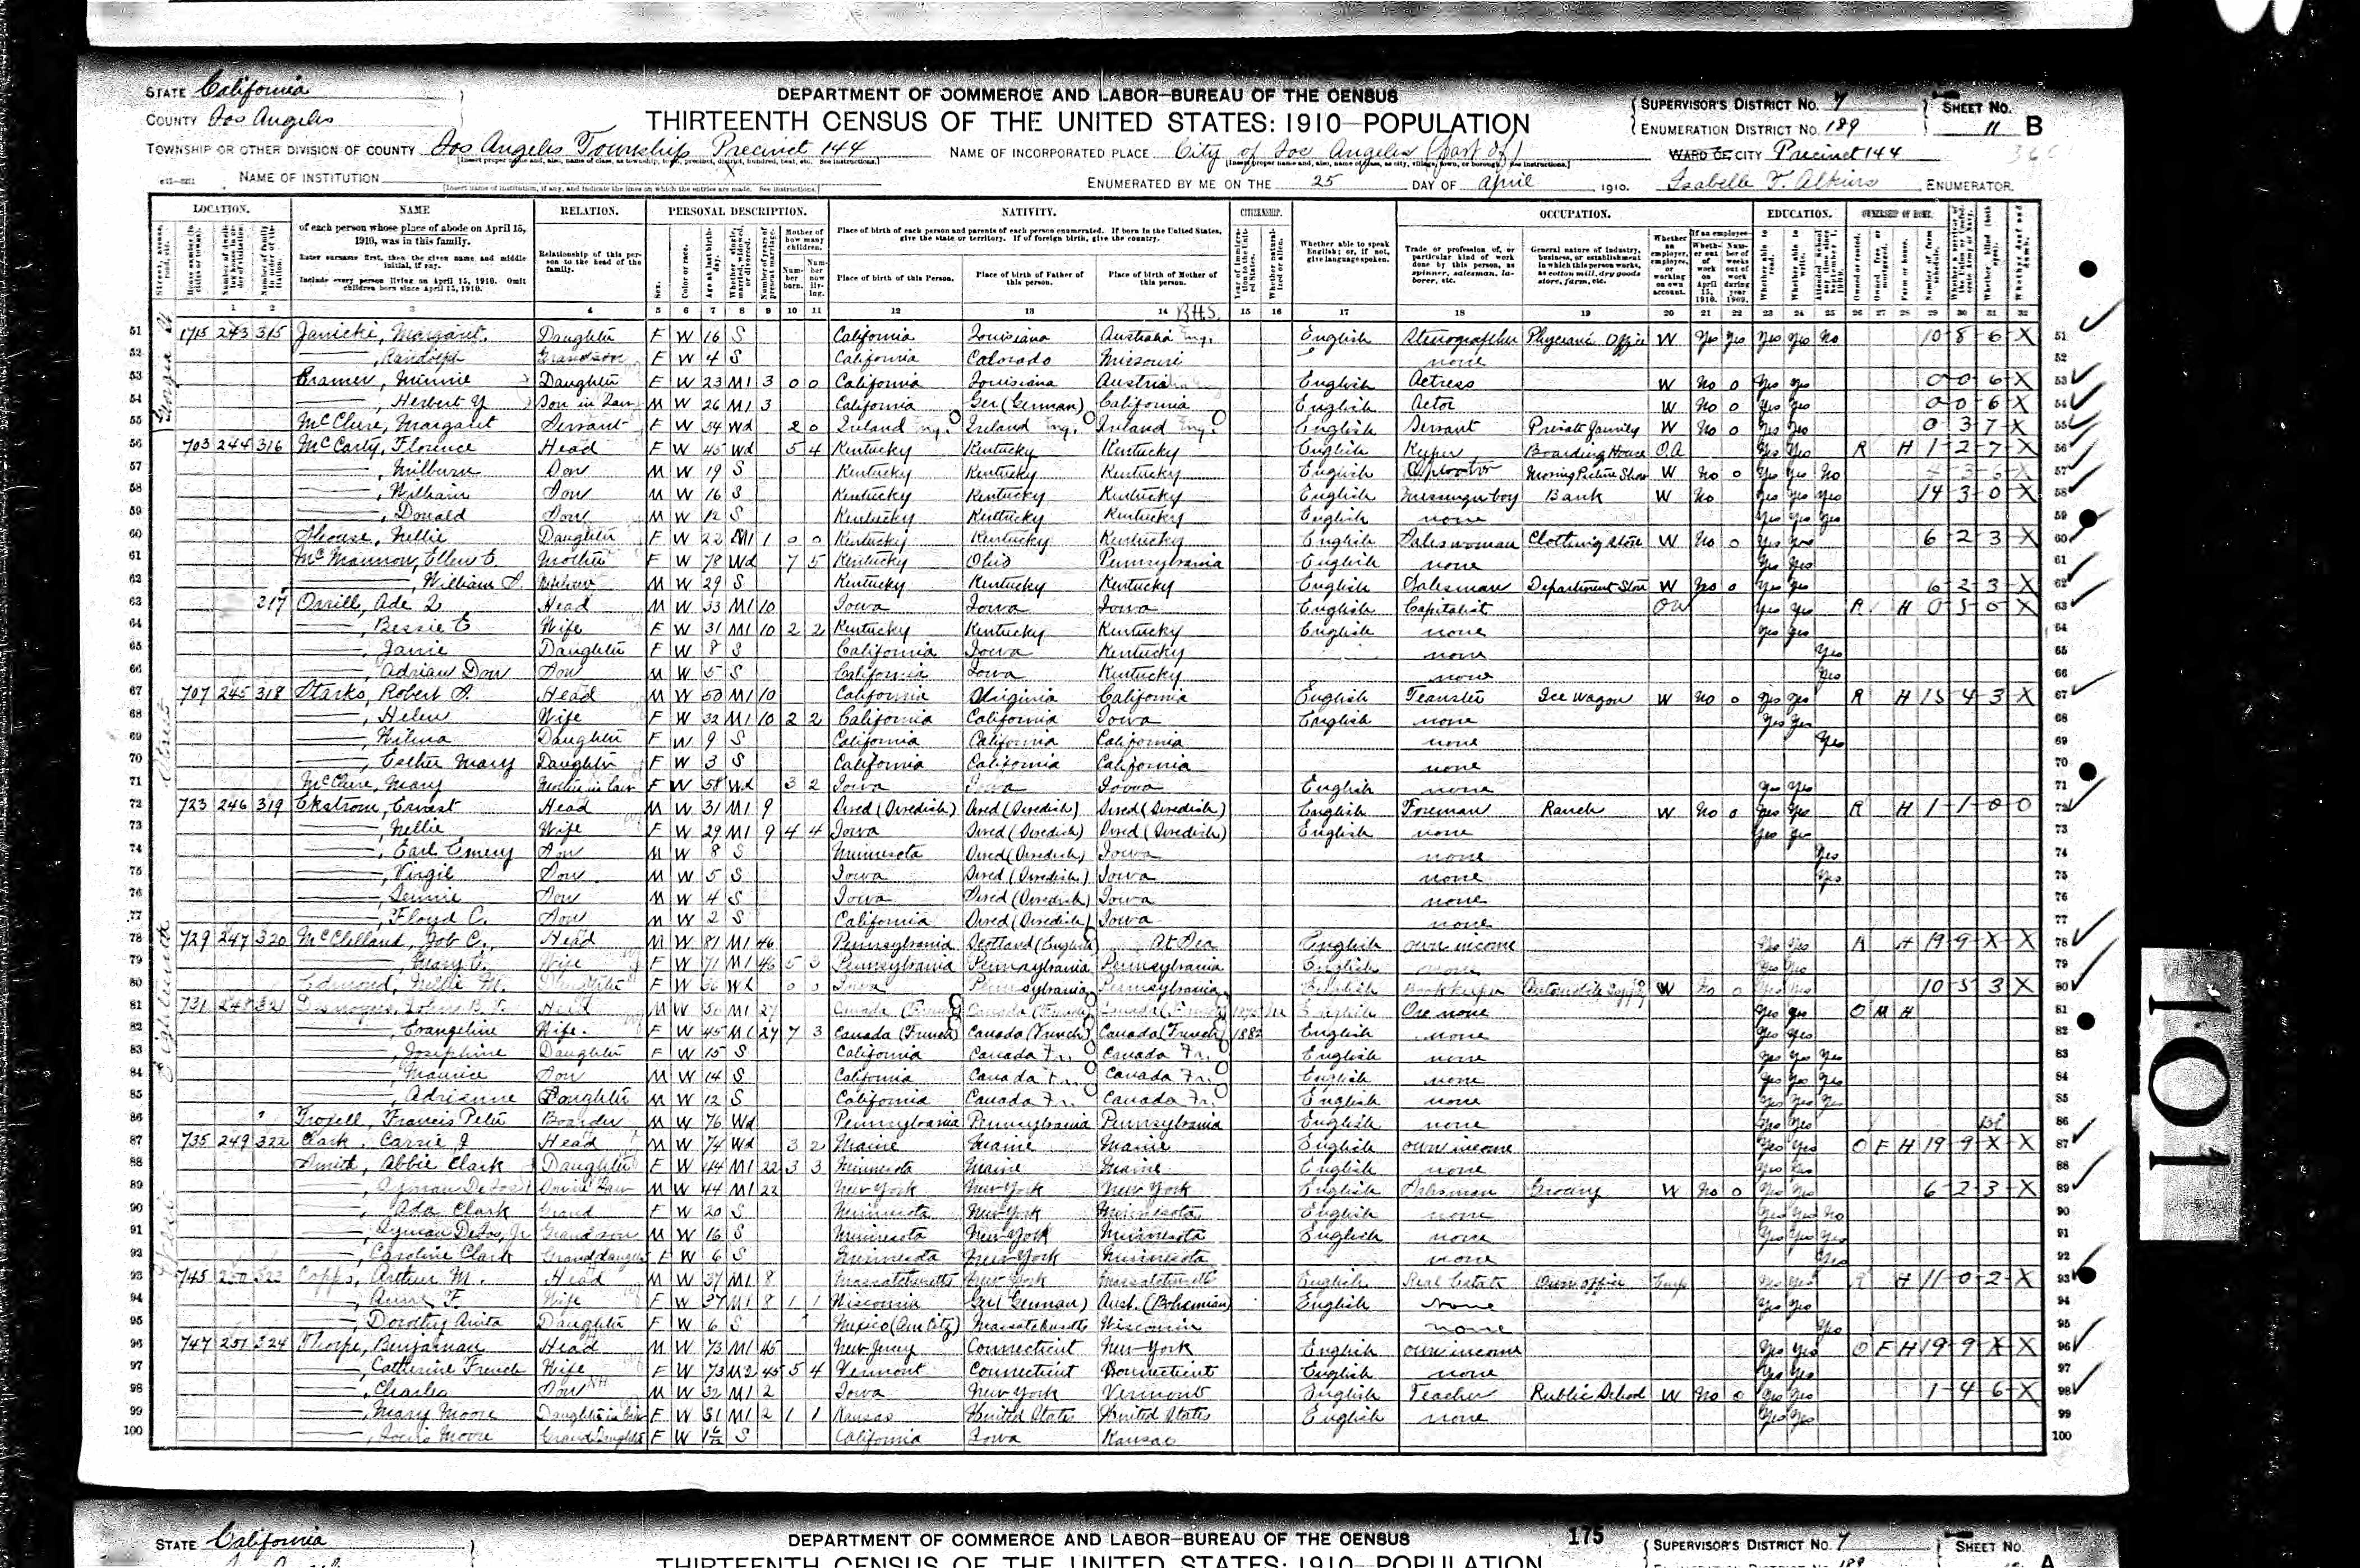 STATE California
COUNTY Los Angeles
TOWNSHIP OR OTHER DIVISION OF COUNTY Los Angeles Township Precinct 144
NAME OF INSTITUTION
DEPARTMENT OF COMMERCE AND LABOR—BUREAU OF THE CENSUS
THIRTEENTH CENSUS OF THE UNITED STATES: 1910—POPULATION
NAME OF INCORPORATED PLACE City of Los Angeles (part of)
ENUMERATED BY ME ON THE 25 DAY OF April, 1910. Isabelle F. Atkins, ENUMERATOR.
SUPERVISOR'S DISTRICT No. 7
ENUMERATION DISTRICT No. 189
SHEET No. 11 B
WARD OF CITY Precinct 144
LOCATION. NAME RELATION. PERSONAL DESCRIPTION. NATIVITY. CITIZENSHIP. OCCUPATION. EDUCATION. OWNERSHIP OF HOME.
of each person whose place of abode on April 15, 1910, was in this family.
Enter surname first, then the given name and middle initial, if any.
Include every person living on April 15, 1910. Omit children born since April 15, 1910.
Relationship of this person to the head of the family.
Place of birth of each person and parents of each person enumerated. If born in the United States, give the state or territory. If of foreign birth, give the country.
Place of birth of this Person. Place of birth of Father of this person. Place of birth of Mother of this person.
Whether able to speak English; or, if not, give language spoken.
Trade or profession of, or particular kind of work done by this person, as spinner, salesman, laborer, etc.
General nature of industry, business, or establishment in which this person works, as cotton mill, dry goods store, farm, etc.
51 1715 243 315 Janicki, Margaret Daughter F W 16 S California Louisiana Australia Eng. English Stenographer Physician's Office W Yes Yes Yes Yes No 10-8-6-X 51
52 , Randolph Grandson F W 4 S California Colorado Missouri none 52
53 Cramer, Minnie Daughter F W 23 M1 3 0 0 California Louisiana Austria English Actress W No 0 Yes Yes 0-0-6-X 53
54 , Herbert Y Son in Law M W 26 M1 3 California Ger (German) California English Actor W No 0 Yes Yes 0-0-6-X 54
55 McClure, Margaret Servant F W 34 Wd 2 0 Ireland Eng. Ireland Eng. Ireland Eng. English Servant Private family W No 0 Yes Yes 0 3 7 X 55
56 703 244 316 McCarty, Florence Head F W 45 Wd 5 4 Kentucky Kentucky Kentucky English Keeper Boarding House O.A. Yes Yes R H 1-2-7-X 56
57 , Milburn Son M W 19 S Kentucky Kentucky Kentucky English Operator Moving Picture Show W No 0 Yes Yes No 57
58 , William Son M W 16 S Kentucky Kentucky Kentucky English Messenger boy Bank W No Yes Yes Yes 14 3-0-X 58
59 , Donald Son M W 12 S Kentucky Kentucky Kentucky English none Yes Yes Yes 59
60 Nellie Daughter F W 22 M1 1 0 0 Kentucky Kentucky Kentucky English Saleswoman Clothing Store W No 0 Yes Yes 6-2-3-X 60
61 Ellen E. Mother F W 78 Wd 7 5 Kentucky Ohio Pennsylvania English none Yes Yes 61
62 , William S. M W 29 S Kentucky Kentucky Kentucky English Salesman Department Store W No 0 Yes Yes 6-2-3-X 62
63 317 Orrill, Ade L Head M W 33 M1 10 Iowa Iowa Iowa English Capitalist OW Yes Yes R H 0-5-0-X 63
64 , Bessie E Wife F W 31 M1 10 2 2 Kentucky Kentucky Kentucky English none Yes Yes 64
65 , Janie Daughter F W 8 S California Iowa Kentucky none Yes 65
66 , Adrian Don Son M W 5 S California Iowa Kentucky none Yes 66
67 707 245 318 Starks, Robert S. Head M W 50 M1 10 California Virginia California English Teamster Ice Wagon W No 0 Yes Yes R H 15-4-3-X 67
68 , Helen Wife F W 32 M1 10 2 2 California California Iowa English none Yes Yes 68
69 , Wilma Daughter F W 9 S California California California none Yes 69
70 , Esther Mary Daughter F W 3 S California California California none 70
71 McClure, Mary Mother in Law F W 58 Wd 3 2 Iowa Iowa Iowa English none Yes Yes 71
72 723 246 319 Ekstrom, Ernest Head M W 31 M1 9 Swed (Swedish) Swed (Swedish) Swed (Swedish) English Foreman Ranch W No 0 Yes Yes R H 1-1-0-0 72
73 , Nellie Wife F W 29 M1 9 4 4 Iowa Swed (Swedish) Swed (Swedish) English none Yes Yes 73
74 , Earl Emery Son M W 8 S Minnesota Swed (Swedish) Iowa none Yes 74
75 , Virgil Son M W 5 S Iowa Swed (Swedish) Iowa none Yes 75
76 Son M W 4 S Iowa Swed (Swedish) Iowa none 76
77 , Floyd C. Son M W 2 S California Swed (Swedish) Iowa none 77
78 729 247 320 McClelland, Job C. Head M W 81 M1 46 Pennsylvania Scotland (English) At Sea English own income Yes Yes R H 19-9-X-X 78
79 , Mary Wife F W 71 M1 46 5 3 Pennsylvania Pennsylvania Pennsylvania English none Yes Yes 79
80 Edmond, Nellie M. Daughter F W 36 Wd 0 0 Iowa Pennsylvania Pennsylvania English Bookkeeper Automobile Supply W No 0 Yes Yes 10-5-3-X 80
81 731 248 321 Head M W M1 27 Canada (French) Canada (French) Canada (French) English none Yes Yes O M H 81
82 , Evangeline Wife F W 45 M1 27 7 3 Canada (French) Canada (French) Canada (French) 1882 English none Yes Yes 82
83 , Josephine Daughter F W 15 S California Canada Fr. Canada Fr. English none Yes Yes Yes 83
84 , Maurice Son M W 14 S California Canada Fr. Canada Fr. English none Yes Yes Yes 84
85 , Adrienne Daughter M W 12 S California Canada Fr. Canada Fr. English none Yes Yes Yes 85
86 Troxell, Francis Peter Boarder M W 76 Wd Pennsylvania Pennsylvania Pennsylvania English none Yes Yes Bl 86
87 735 249 322 Clark, Carrie J Head M W 74 Wd 3 2 Maine Maine Maine English own income Yes Yes O F H 19-9-X-X 87
88 Smith, Abbie Clark Daughter F W 44 M1 22 3 3 Minnesota Maine Maine English none Yes Yes 88
89 , Lyman Delos Son in Law M W 44 M1 22 New York New York New York English Salesman Grocery W No 0 Yes Yes 6-2-3-X 89
90 , Ada Clark Grand F W 20 S Minnesota New York Minnesota English none Yes Yes No 90
91 , Lyman Delos, Jr Grandson M W 16 S Minnesota New York Minnesota English none Yes Yes Yes 91
92 , Caroline Clark Granddaughter F W 6 S Minnesota New York Minnesota none Yes 92
93 745 250 323 Copps, Arthur M. Head M W 37 M1 8 Massachusetts New York Massachusetts English Real Estate Own office Emp Yes Yes R H 11-0-2-X 93
94 , Anne F. Wife F W 37 M1 8 1 1 Wisconsin Ger (German) Aust. (Bohemian) English none Yes Yes 94
95 , Dorothy Anita Daughter F W 6 S Mexico (Am Citz) Massachusetts Wisconsin none Yes 95
96 747 251 324 Thorpe, Benjaman Head M W 73 M1 45 New Jersey Connecticut New York English own income Yes Yes O F H 19-9-X-X 96
97 , Catherine French Wife F W 73 M2 45 5 4 Vermont Connecticut Connecticut English none Yes Yes 97
98 , Charles Son NH M W 32 M1 2 Iowa New York Vermont English Teacher Public School W No 0 Yes Yes 1-4-6-X 98
99 , Mary Moore Daughter in Law F W 31 M1 2 1 1 Kansas United States United States English none Yes Yes 99
100 Moore Grand Daughter F W S California Iowa Kansas 100
101
STATE California
DEPARTMENT OF COMMERCE AND LABOR—BUREAU OF THE CENSUS
175
THIRTEENTH CENSUS OF THE UNITED STATES: 1910—POPULATION
SUPERVISOR'S DISTRICT No. 7
SHEET No.